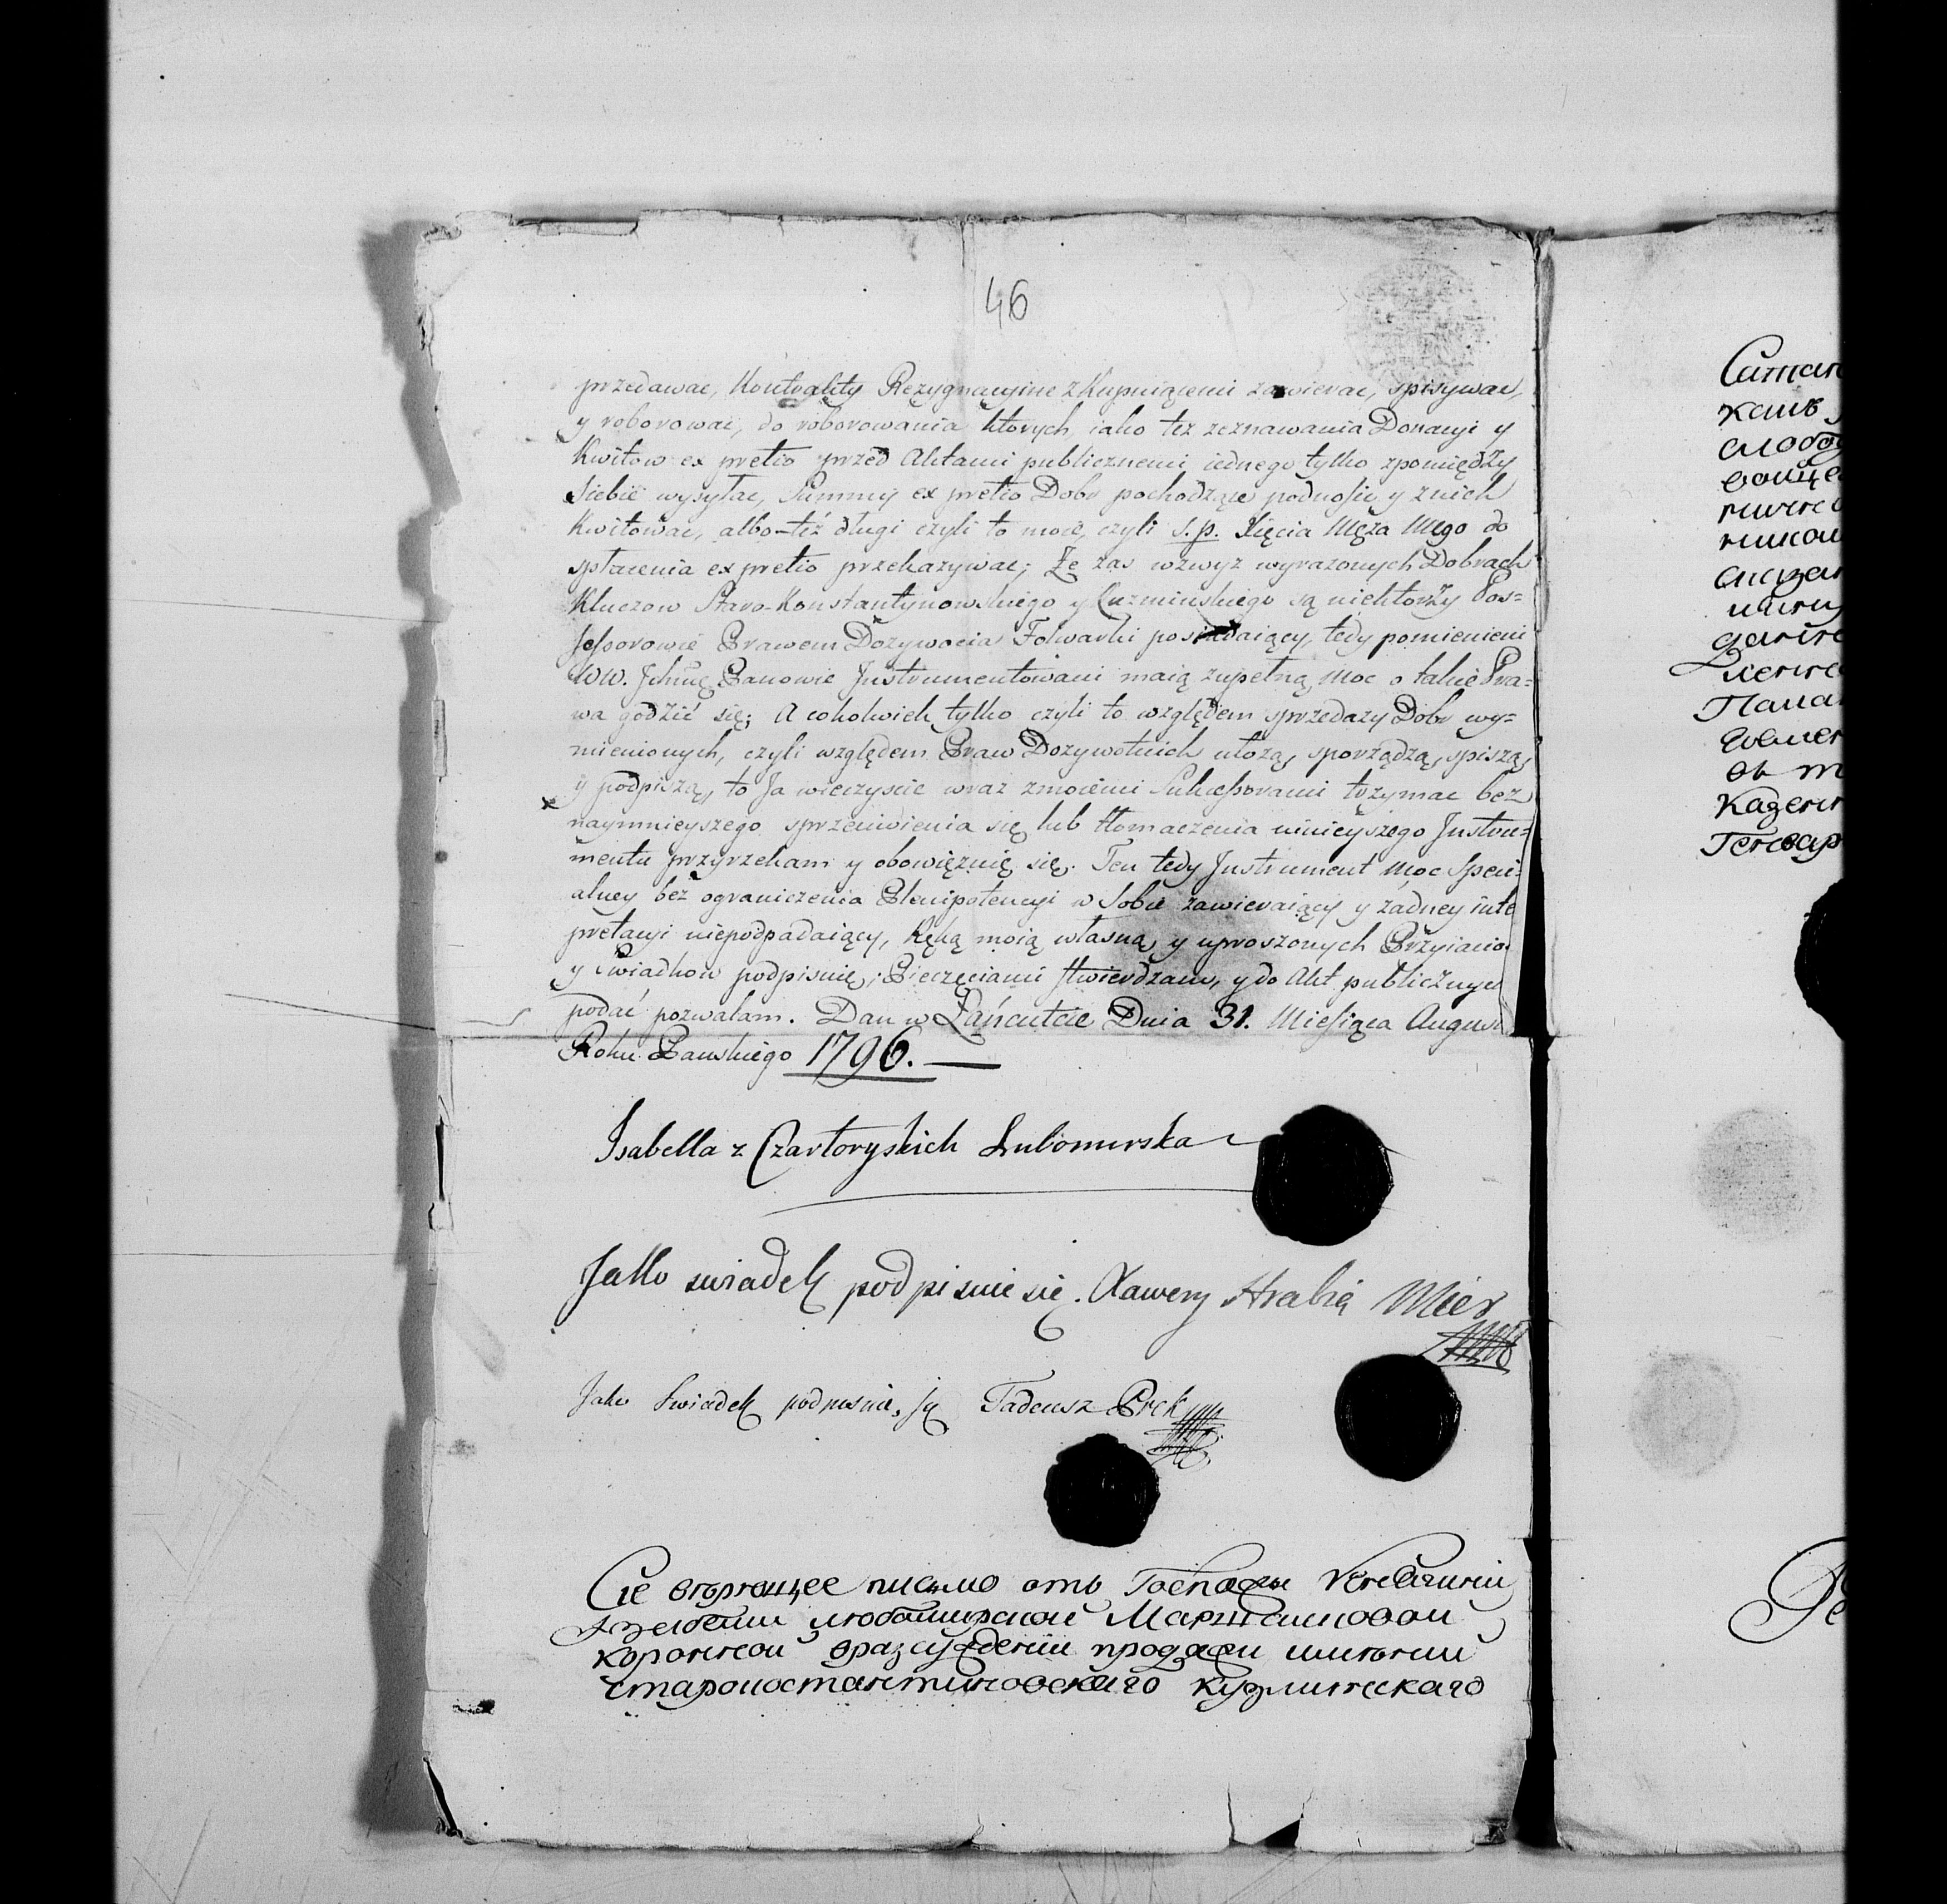 46
przedawac, Kontrakty Rezygnacyine z Kupuiącemi zawierac, spisywac,
y roborowac, do roborowania ktorych iako tez zeznawania Donacyi y
Kwitow ex pretio przed Aktami publicznemi iednego tylko zpomiędzy
Siebie wysyłac, Summy ex pretio Dobr pochodzące podnosic y znich
Kwitowac, albo-też długi czyli to moie, czyli s. p. Xięcia Męża Mego do
spłacenia ex pretio przekazywac; Że zas wzwyz wyrazonych Dobrach
Kluczow Staro-Konstantynowskiego y Kuzminskiego są niektorzy Pos=
sessorowie Prawem Dozywocia Folwarki posiadaiący, tedy pomienieni
WW. Ichmę Panowie Instrumentowani maią zupełną Moc o takie Pra=
wa godzić się; A cokolwiek tylko czyli to względem sprzedazy Dobr wy=
mienionych, czyli względem Praw Dozywotnich ułozą, sporządzą, spiszą,
y podpiszą, to Ja wieczyscie wraz zmoiemi Sukcessorami trzymac bez
naymnieyszego sprzeciwienia się lub tłomaczenia ninieyszego Instru=
mentu przyrzekam y obowięzuię się. Ten tedy Instrument Moc Speci=
alney bez ograniczenia Plenipotencyi w Sobie zawieraiący y żadney inte
pretacyi niepodpadaiący, Ręką moią własną y uproszonych Przyiacio
y Swiadkow podpisuię; Pieczęciami stwierdzam, y do Akt publicznyc
podać pozwalam. Dan w Łańcutcie Dnia 31. Miesiąca August
Roku Pańskiego 1796.
Isabella z Czartoryskich Lubomirska
Jako swiadek podpisuie się. Xawery Hrabia Mier
Jako Swiadek podpisuie się Tadeusz Prek
Сіе вѣрющее письмо отъ Госпожи Княгини
любомирской Маршалковой
коронной вразсужденіи продажи имѣній
староконстантиновскаго кузминскаго